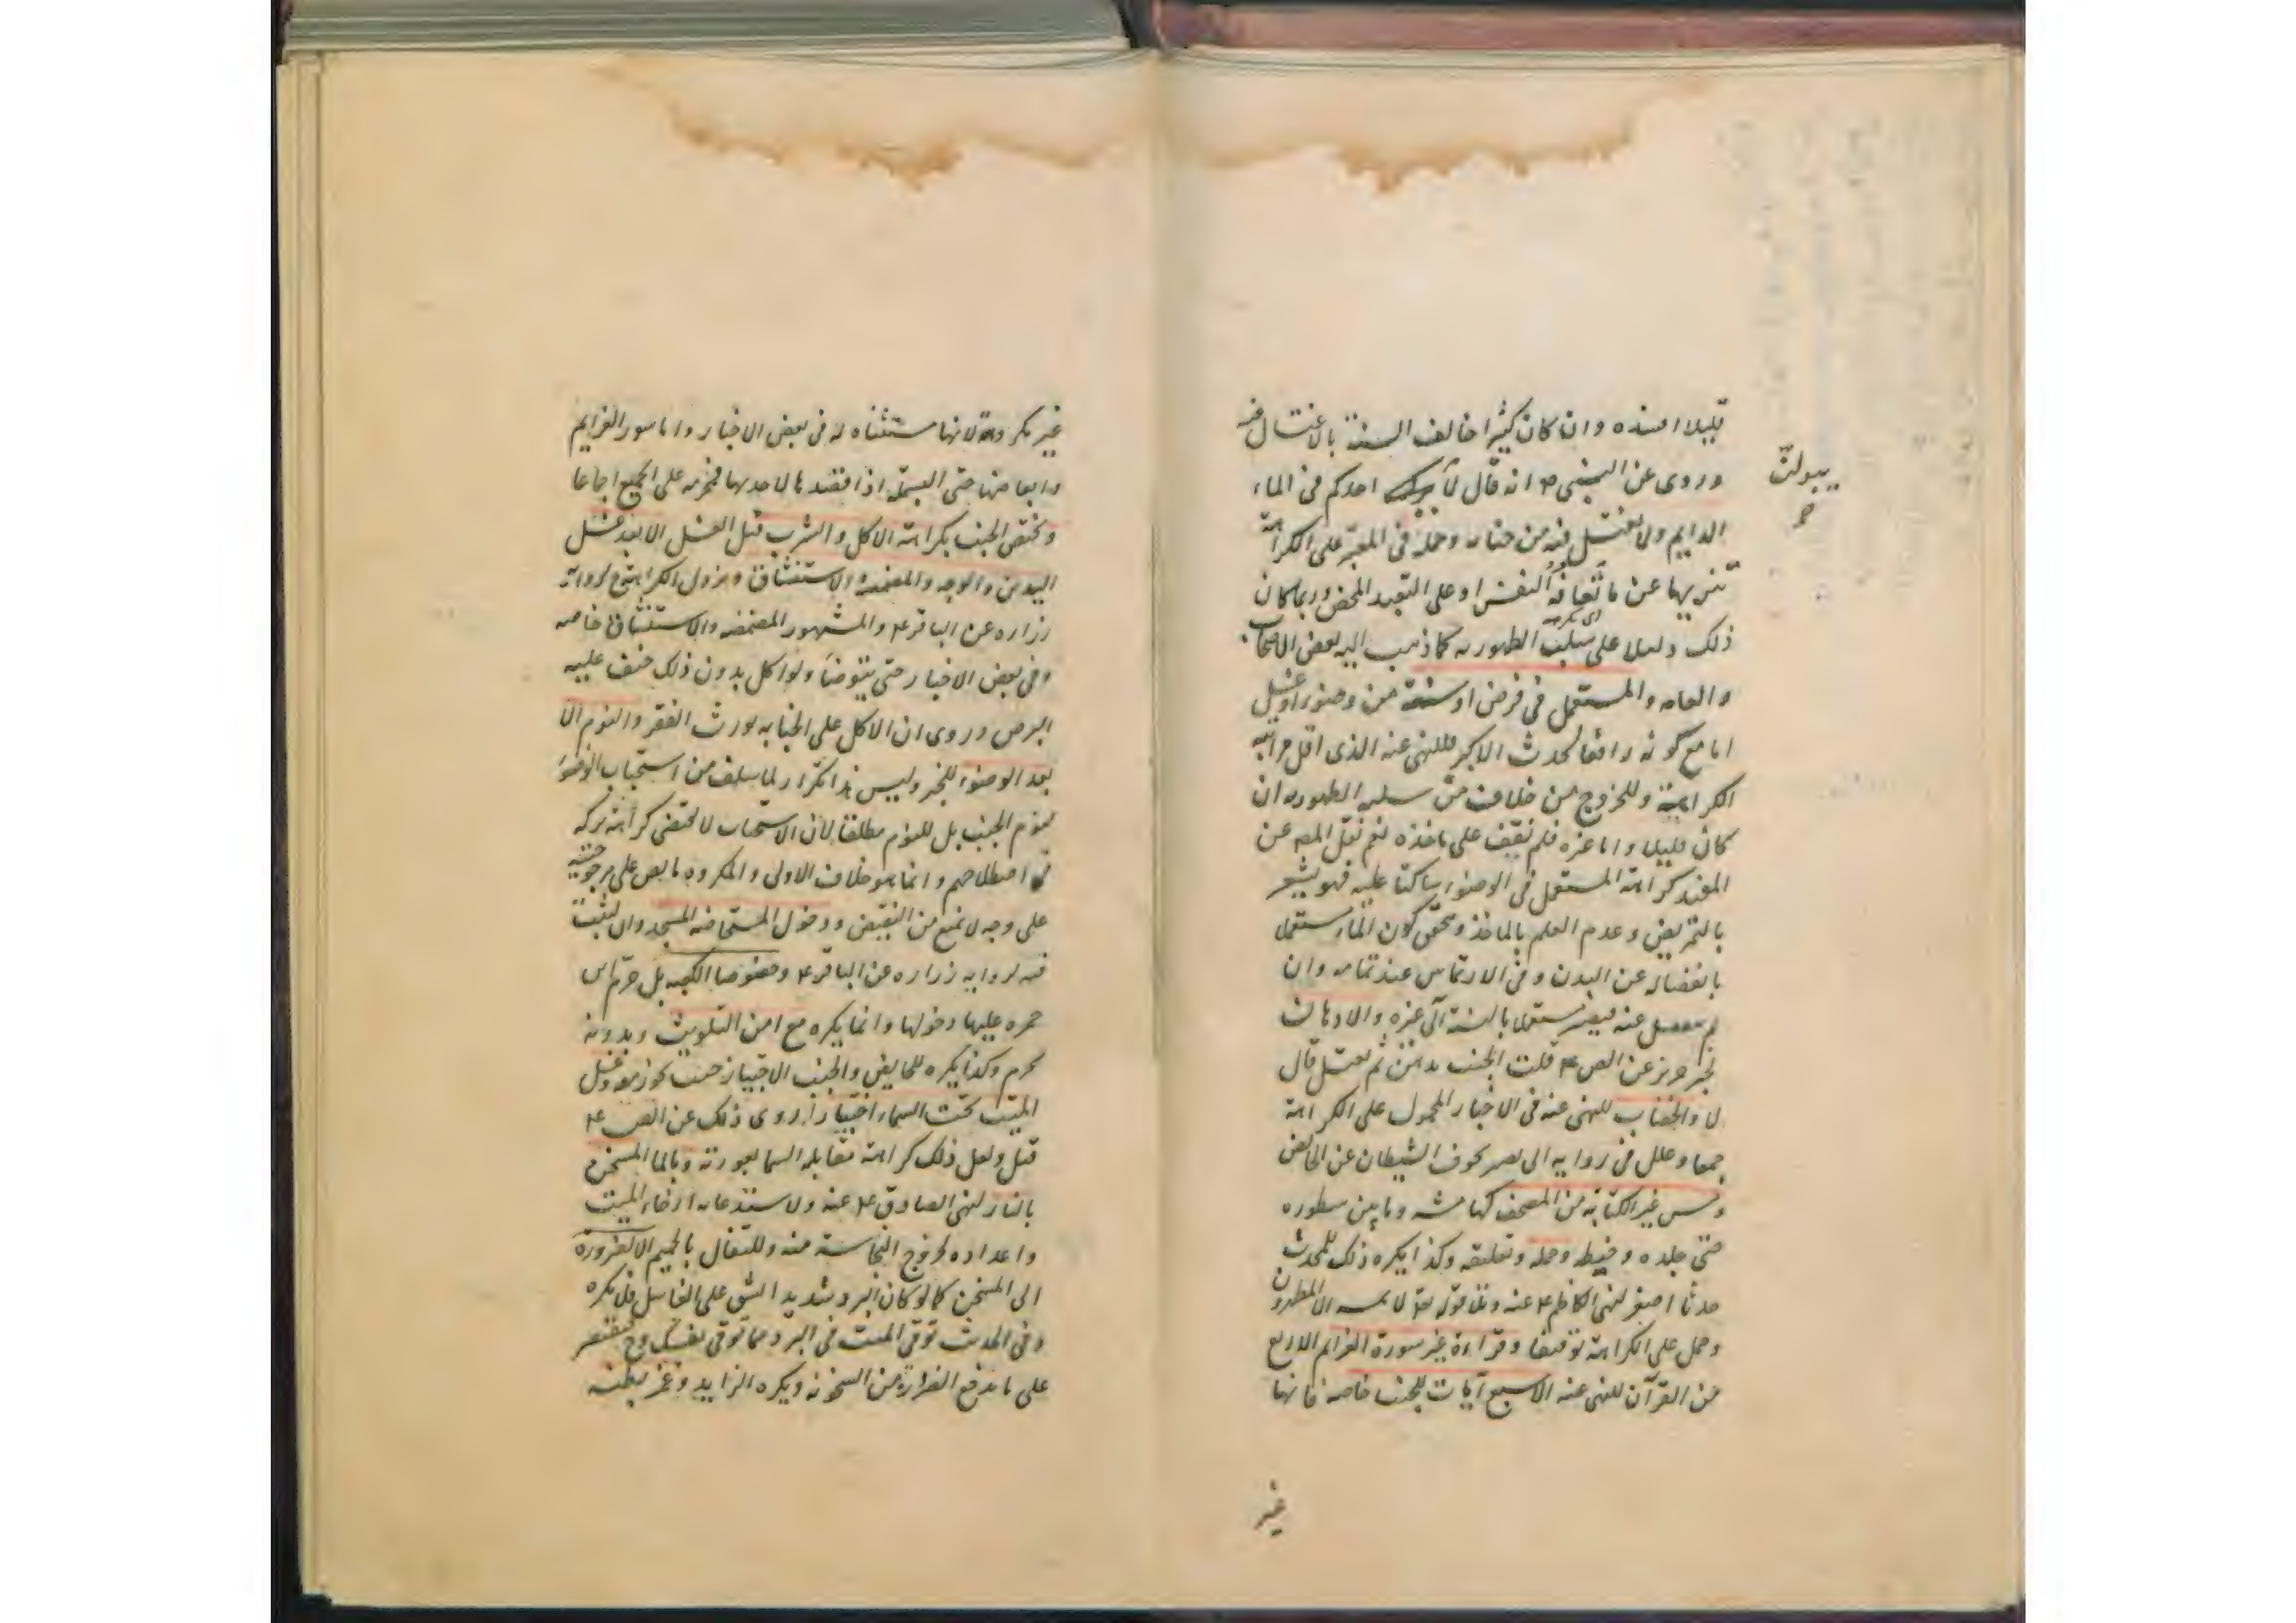 قليلا افسده وان كان كثيرا خالف السنة بالاغتسال فيه
وروى عن النبي ص انه قال لا احدكم فى الماء
يبولن
الدايم ولا يغتسل فيه من جنابه وحمله فى المعتبر على الكراهة
تنزيها عن ما تعافه النفس او على التعبد المحض وربما كان
اى تكرهه
ذلك دليلا على سلب الطهوريه كما ذهب اليه بعض الاصحاب
والعامه والمستعمل فى فرض او سنة من وضوء او غسل
اما مع كونه رافعا لحدث الاكبر فللنهى عنه الذى اقل مراتبه
الكراهية وللخروج من خلاف من سلبه الطهوريه ان
كان قليلا واما غيره فلم نقف على ماخذه نعم نقل المصه عن
المفيد كراهة المستعمل فى الوضوء ساكتا عليه فهو يشعر
بالتمريض وعدم العلم بالماخذ ويتحقق كون الماء مستعملا
بانفصاله عن البدن وفى الارتماس عند تمامه وان
لم ينفصل عنه فيصير مستعملا بالنسبة الى غيره والادهان
لخبر حريز عن الص ع قلت الجنب يدهن ثم يغتسل قال
لا والخضاب للنهى عنه فى الاخبار المحمول على الكراهة
جمعا وعلل فى روايه ابى بصير بخوف الشيطان عن الحائض
ومس غير الكتابة من المصحف كهامشه وما بين سطوره
حتى جلده وخيطه وحمله وتعليقه وكذا يكره ذلك للمحدث
حدثا اصغر لنهى الكاظم ع عنه وتلا قوله تعا لا يمسه الا المطهرون
وحمل على الكراهة توفيقا وقراءة غير سورة العزايم الاربع
من القرآن للنهى عنه الا سبع آيات للجنب خاصه فانها
غير
غير مكروهة لانها مستثناه له فى بعض الاخبار واما سور العزايم
وابعاضها حتى البسملة اذا قصدها لاحديها فمحرمه على الجميع اجماعا
ويختص الجنب بكراهة الاكل والشرب قبل الغسل الا بعد غسل
اليدين والوجه والمضمضة والاستنشاق ويزول الكراهة مع لرواية
زراره عن الباقر ع والمشهور المضمضه والاستنشاق خاصه
وفى بعض الاخبار حتى يتوضأ ولو اكل بدون ذلك خيف عليه
البرص وروى ان الاكل على الجنابه يورث الفقر والنوم الا
بعد الوضوء للخبر وليس هذا تكرار لما سلف من استحباب الوضوء
لنوم الجنب بل للنوم مطلقا لان الاستحباب لا يقتضى كراهة تركه
فى اصطلاحهم وانما هو خلاف الاولى والمكروه ما نص على مرجوحيته
على وجه لا يمنع من النقيض ودخول المستحاضه المسجد واللبث
فيه لروايه زراره عن الباقر ع وخصوصا الكعبه بل حرم ابن
حمزه عليها دخولها وانما يكره مع امن التلويث وبدونه
يحرم وكذا يكره للحايض والجنب الاجتياز حيث يجوز معه وغسل
الميت تحت السماء اختيارا روى ذلك عن الص ع
قيل ولعل ذلك كراهة مقابله السما بعورته وبالما المسخن
بالنار لنهى الصادق ع عنه ولاستدعائه ارخاء الميت
واعداده لخروج النجاسة منه وللتفأل بالحميم الا لضرورة
الى المسخن كما لو كان البرد شديدا يشق على الغاسل فلا يكره
وفى الحديث توقى الميت فى البرد مما توقى نفسك وح فيقتصر
على ما يدفع الضرورة من السخونه ويكره الزايد وغمز بطنه